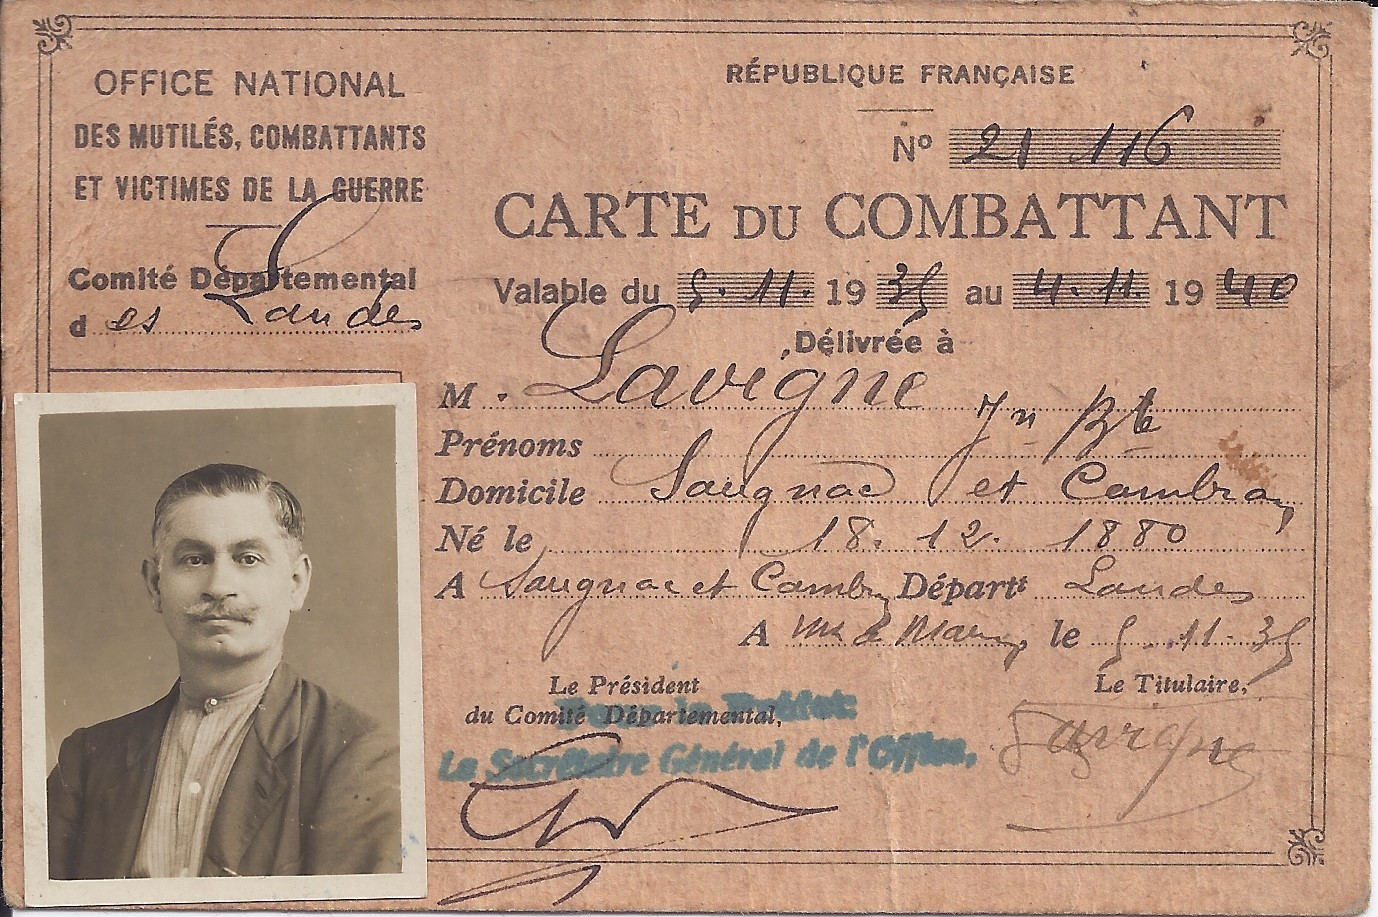 OFFICE NATIONAL
DES MUTILÉS, COMBATTANTS
ET VICTIMES DE LA GUERRE
Comité Départemental
d es Landes
RÉPUBLIQUE FRANÇAISE
Nº 21 116
CARTE DU COMBATTANT
Valable du 5.11.1935 au 4.11.1940
Délivrée à
M. Lavigne
Prénoms Jn Bte
Domicile Saugnac et Cambran
Né le 18.12.1880
A Saugnac et Cambran Départt Landes
A Mt de Marsan le 5.11.35
Le Président
du Comité Départemental,
Pour le Préfet:
Le Secrétaire Général de l'Office,
Le Titulaire,
Lavigne